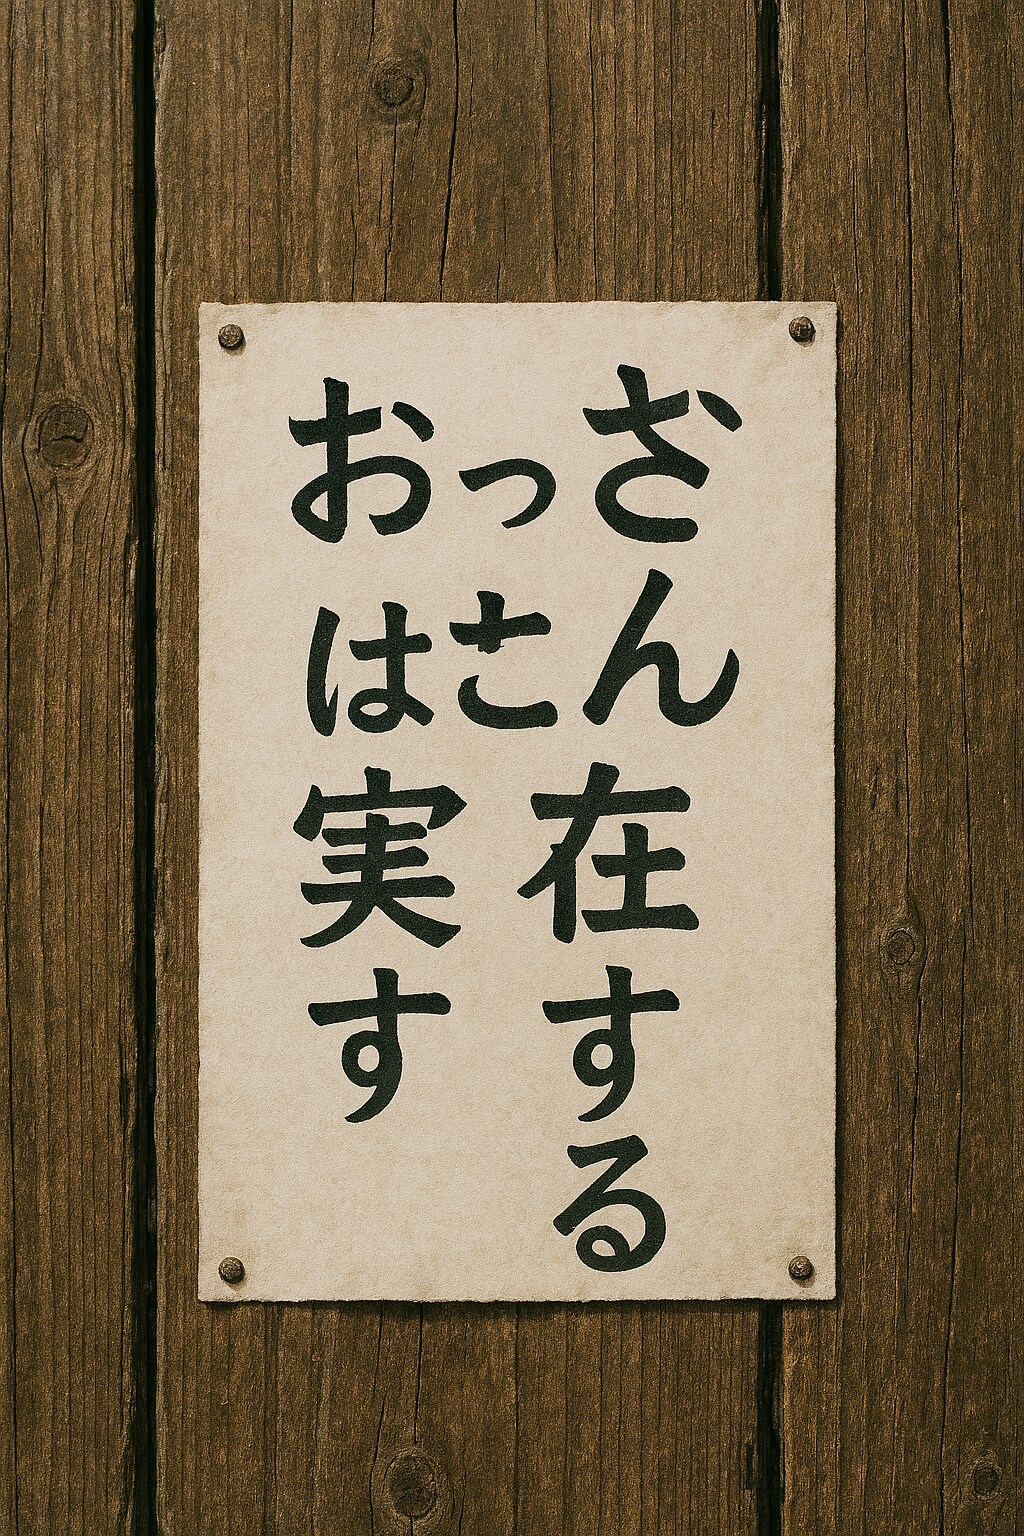 おっざ
はさん
実在
すす
る